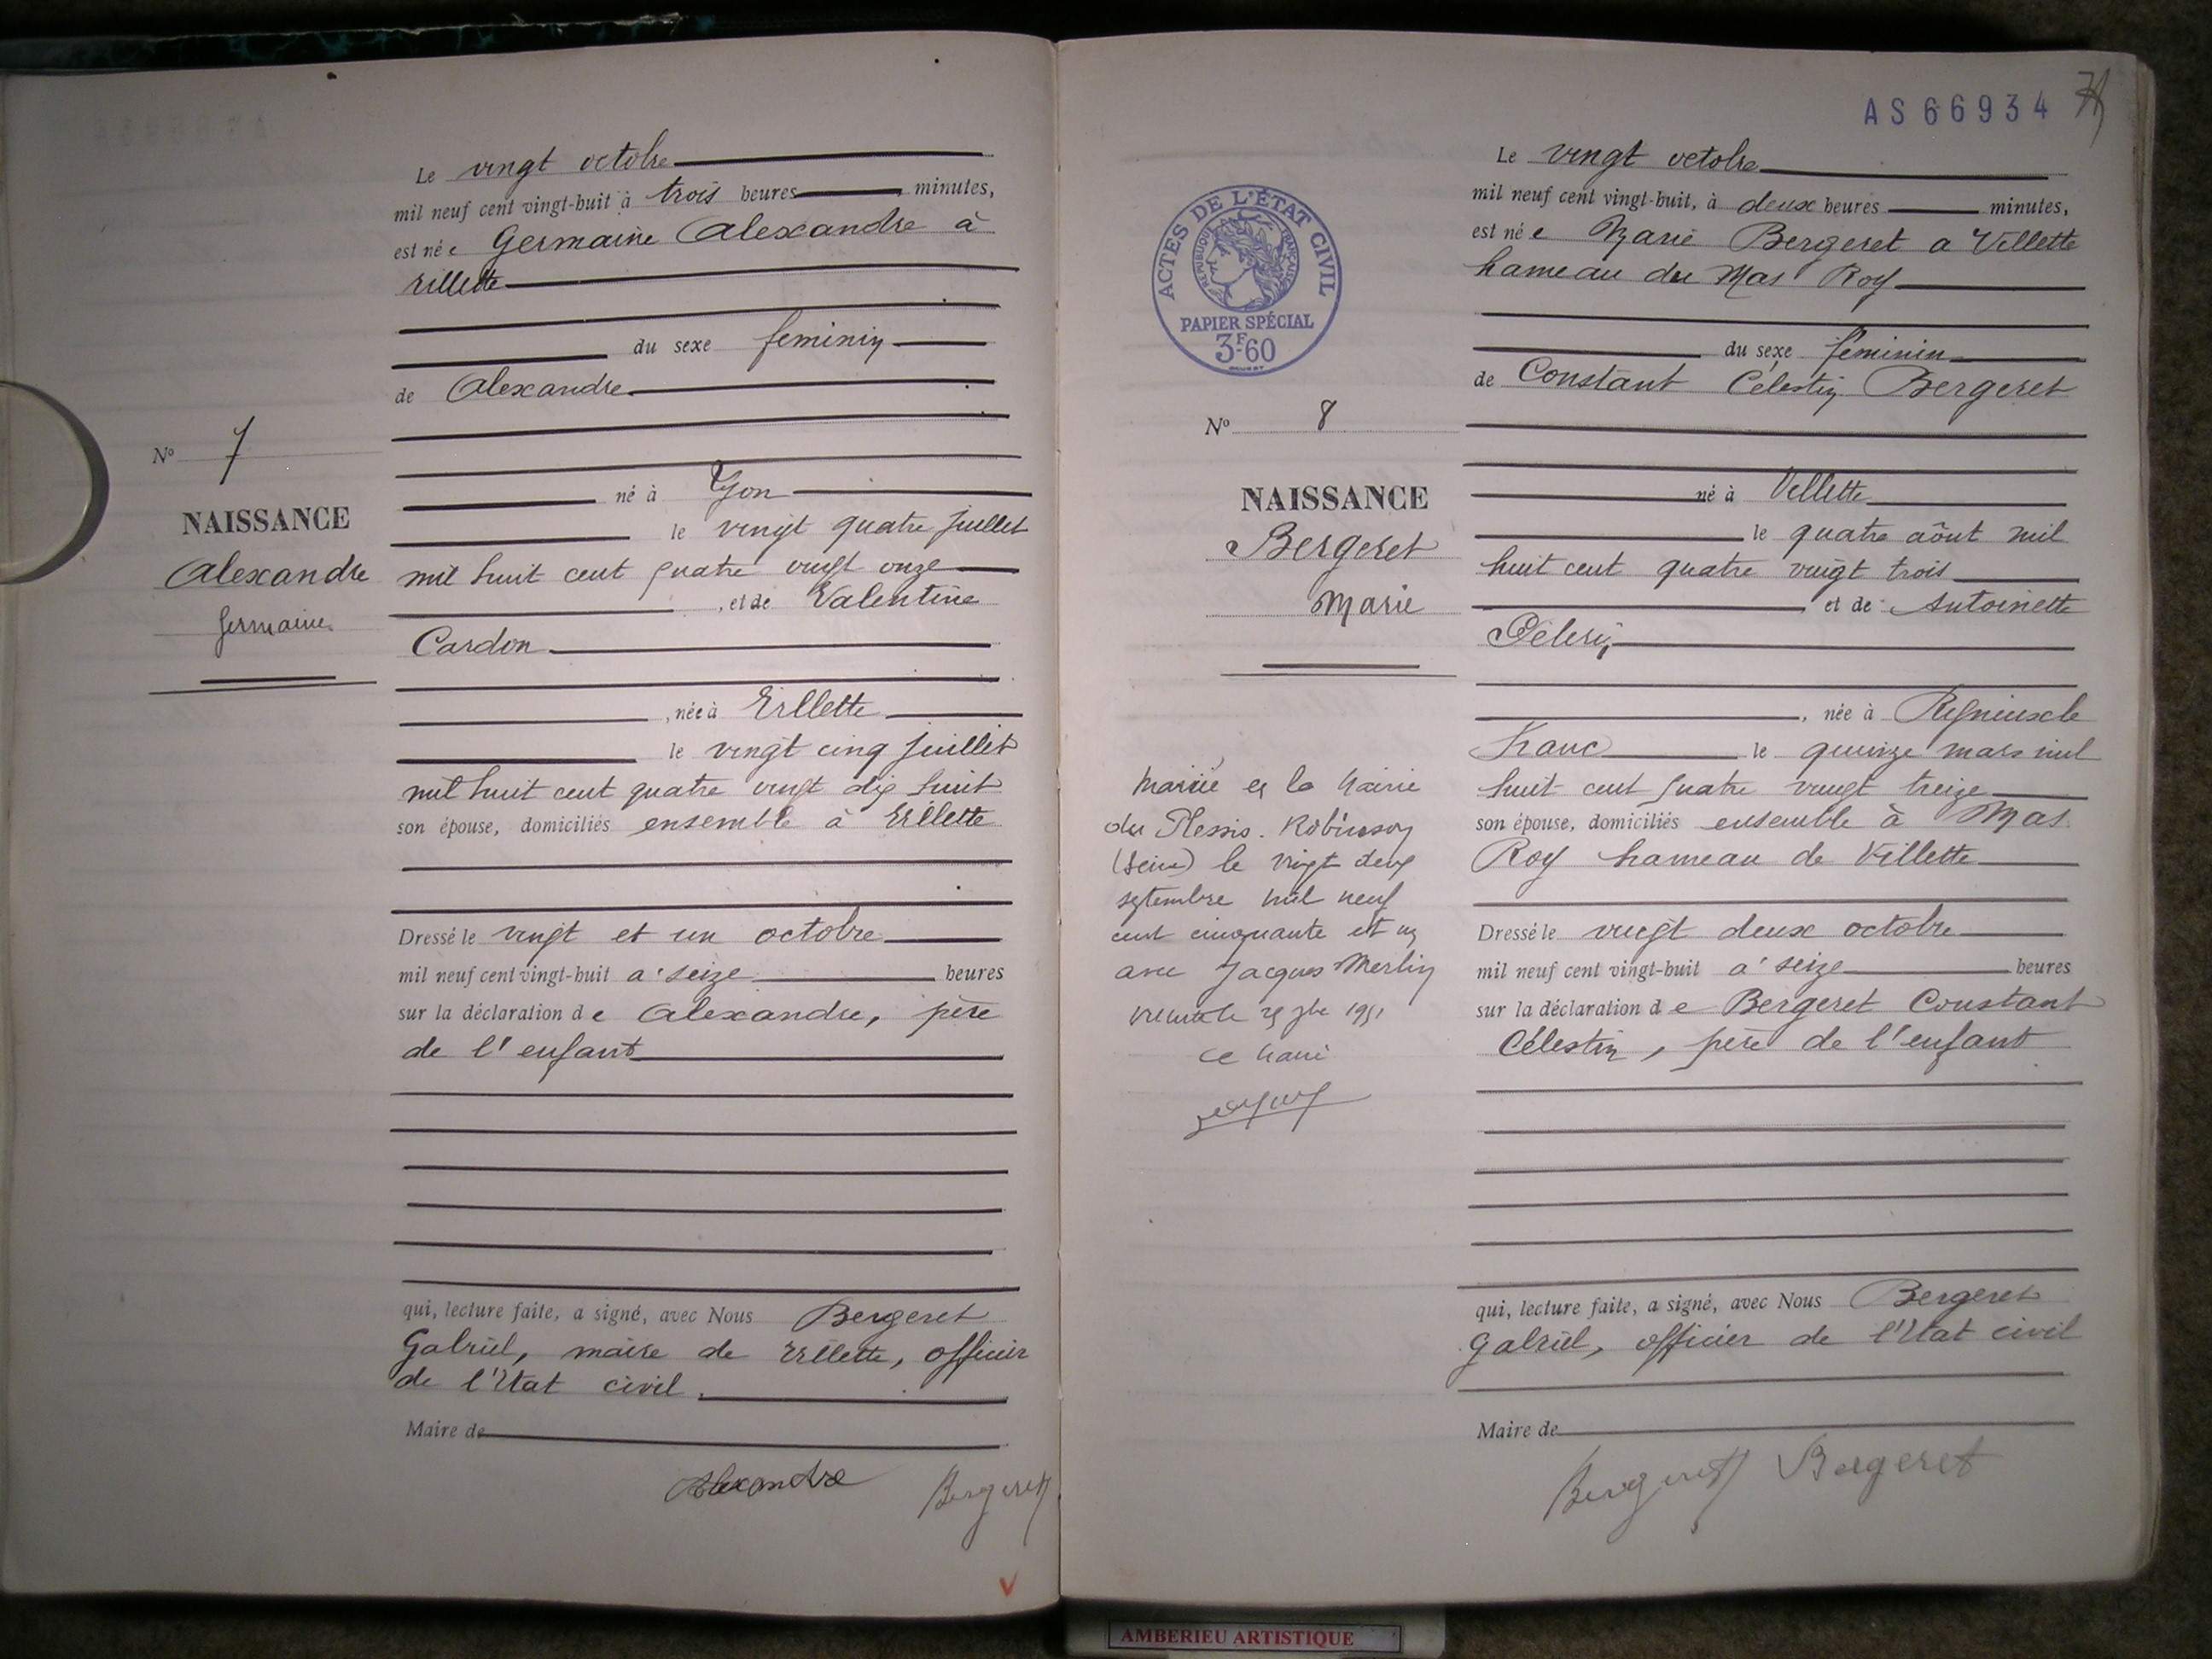 Le vingt octobre
mil neuf cent vingt-huit à trois heures minutes,
est née Germaine Alexandre à
Villette
du sexe feminin
de Alexandre
né à Lyon
le vingt quatre juillet
mil huit cent quatre vingt onze
, et de Valentine
Cardon
, née à Villette
le vingt cinq juillet
mil huit cent quatre vingt dix huit
son épouse, domiciliés ensemble à Villette
Dressé le vingt et un octobre
mil neuf cent vingt-huit a' seize heures
sur la déclaration de Alexandre, père
de l'enfant
qui, lecture faite, a signé, avec Nous Bergeret
Gabriel, maire de Villette, officier
de l'Etat civil.
Maire de
Alexandre Bergeret
V
No 7
NAISSANCE
Alexandre
Germaine
AS66934
ACTES DE L'ÉTAT CIVIL
RÉPUBLIQUE FRANÇAISE
PAPIER SPÉCIAL
3F60
No 8
NAISSANCE
Bergeret
Marie
Mariée en la Mairie
du Plessis-Robinson
(Seine) le vingt deux
septembre mil neuf
cent cinquante et un
avec Jacques Merlin
1951
Le Maire
Le vingt octobre
mil neuf cent vingt-huit, à deux heures minutes,
est née Marie Bergeret a Villette
hameau du Mas Roy
du sexe féminin
de Constant Célestin Bergeret
né à Villette
le quatre août mil
huit cent quatre vingt trois
et de Antoinette
, née à
Franc le quinze mars mil
huit cent quatre vingt treize
son épouse, domiciliés ensemble à Mas
Roy hameau de Villette
Dressé le vingt deux octobre
mil neuf cent vingt-huit a' seize heures
sur la déclaration de Bergeret Constant
Célestin, père de l'enfant
qui, lecture faite, a signé, avec Nous Bergeret
Gabriel, officier de l'Etat civil
Maire de
Bergeret Bergeret
AMBERIEU ARTISTIQUE